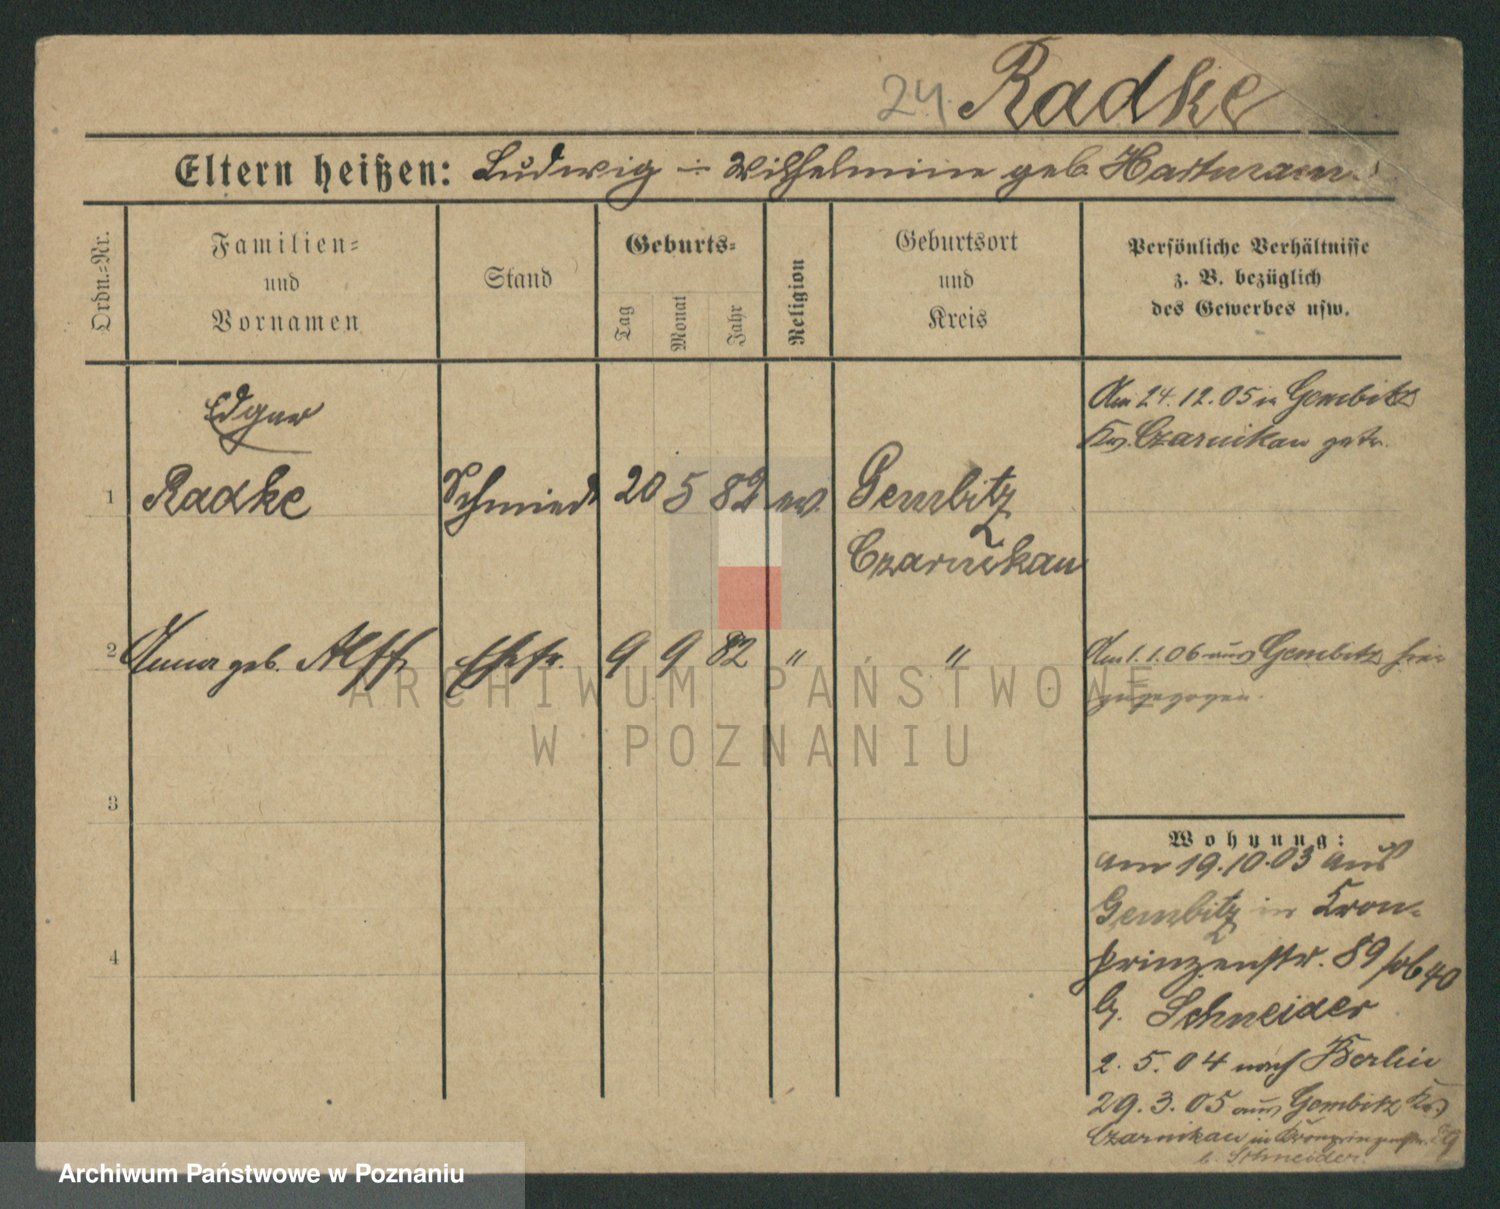 24. Radke
Eltern heißen: Ludwig - Wilhelmine geb. Hartmann
Ordn.=Nr.
Familien=
und
Vornamen
Stand
Geburts=
Tag
Monat
Jahr
Religion
Geburtsort
und
Kreis
Persönliche Verhältnisse
z. B. bezüglich
des Gewerbes usw.
Edgar
1 Radke Schmied 20 5 82 ev. Gembitz
Czarnikau
Am 24.12.05 in Gembitz
Kr. Czarnikau getr.
2 Anna geb. Alff Ehefr. 9 9 82 " "
Am 1.1.06 aus Gembitz hier
zugezogen.
3
4
Wohnung:
am 19.10.03 aus
Gembitz in Kron-
prinzenstr. 89
b. Schneider
2.5.04 nach Berlin
29.3.05 aus Gembitz Kr.
Czarnikau in Kronprinzenstr. 89
b. Schneider.
ARCHIWUM PAŃSTWOWE
W POZNANIU
Archiwum Państwowe w Poznaniu